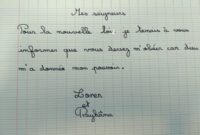 Mes seigneurs
Pour la nouvelle loi, je tenais à vous
informer que vous devez m'obéir car dieu
m'a donnée mon pouvoir.
Loner
et